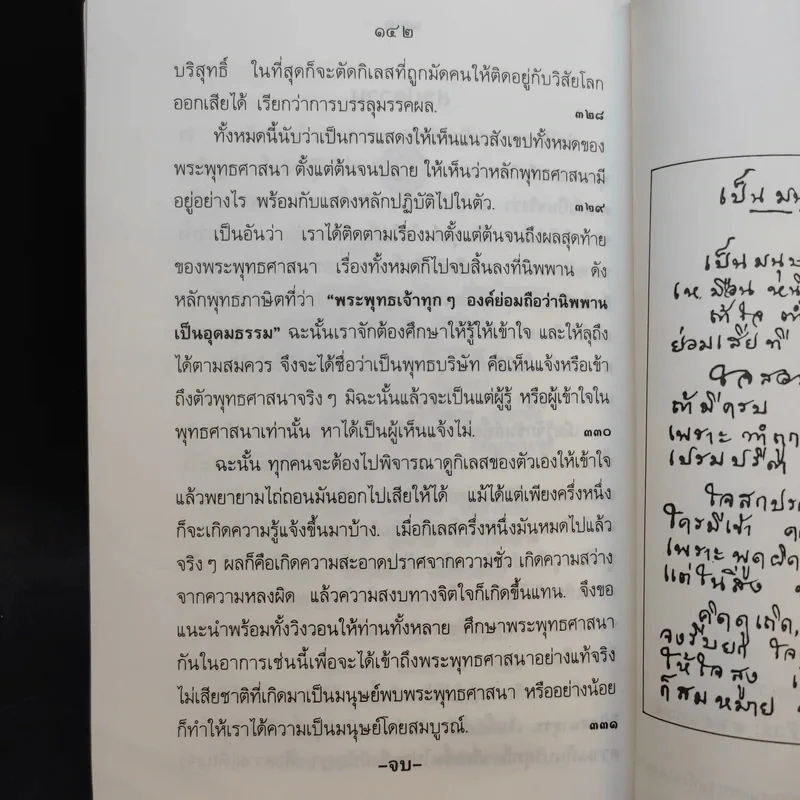 ๑๔๒
บริสุทธิ์ ในที่สุดก็จะตัดกิเลสที่ถูกมัดคนให้ติดอยู่กับวิสัยโลก
ออกเสียได้ เรียกว่าการบรรลุมรรคผล. ๓๒๘
ทั้งหมดนี้นับว่าเป็นการแสดงให้เห็นแนวสังเขปทั้งหมดของ
พระพุทธศาสนา ตั้งแต่ต้นจนปลาย ให้เห็นว่าหลักพุทธศาสนามี
อยู่อย่างไร พร้อมกับแสดงหลักปฏิบัติไปในตัว. ๓๒๙
เป็นอันว่า เราได้ติดตามเรื่องมาตั้งแต่ต้นจนถึงผลสุดท้าย
ของพระพุทธศาสนา เรื่องทั้งหมดก็ไปจบสิ้นลงที่นิพพาน ดัง
หลักพุทธภาษิตที่ว่า “พระพุทธเจ้าทุกๆ องค์ย่อมถือว่านิพพาน
เป็นอุดมธรรม” ฉะนั้นเราจักต้องศึกษาให้รู้ให้เข้าใจ และให้ลุถึง
ได้ตามสมควร จึงจะได้ชื่อว่าเป็นพุทธบริษัท คือเห็นแจ้งหรือเข้า
ถึงตัวพุทธศาสนาจริงๆ มิฉะนั้นแล้วจะเป็นแต่ผู้รู้ หรือผู้เข้าใจใน
พุทธศาสนาเท่านั้น หาได้เป็นผู้เห็นแจ้งไม่. ๓๓๐
ฉะนั้น ทุกคนจะต้องไปพิจารณาดูกิเลสของตัวเองให้เข้าใจ
แล้วพยายามไถ่ถอนมันออกไปเสียให้ได้ แม้ได้แต่เพียงครึ่งหนึ่ง
ก็จะเกิดความรู้แจ้งขึ้นมาบ้าง. เมื่อกิเลสครึ่งหนึ่งมันหมดไปแล้ว
จริงๆ ผลก็คือเกิดความสะอาดปราศจากความชั่ว เกิดความสว่าง
จากความหลงผิด แล้วความสงบทางจิตใจก็เกิดขึ้นแทน. จึงขอ
แนะนำพร้อมทั้งวิงวอนให้ท่านทั้งหลาย ศึกษาพระพุทธศาสนา
กันในอาการเช่นนี้เพื่อจะได้เข้าถึงพระพุทธศาสนาอย่างแท้จริง
ไม่เสียชาติที่เกิดมาเป็นมนุษย์พบพระพุทธศาสนา หรืออย่างน้อย
ก็ทำให้เราได้ความเป็นมนุษย์โดยสมบูรณ์. ๓๓๑
-จบ-
เป็น
เป็น
เหมือน
ถ้า ใจ
ย่อม เสีย ที
ใจ
ถ้า มี ครบ
เพราะ
เปรม ปรีดา
ใจ สกปร
ใคร มี เข้า
เพราะ พูด ผิด
แต่ ใน
คิด ดู เถิด
จง รีบ ยก ใจ
ให้ ใจ สูง
ก็ สม หมาย